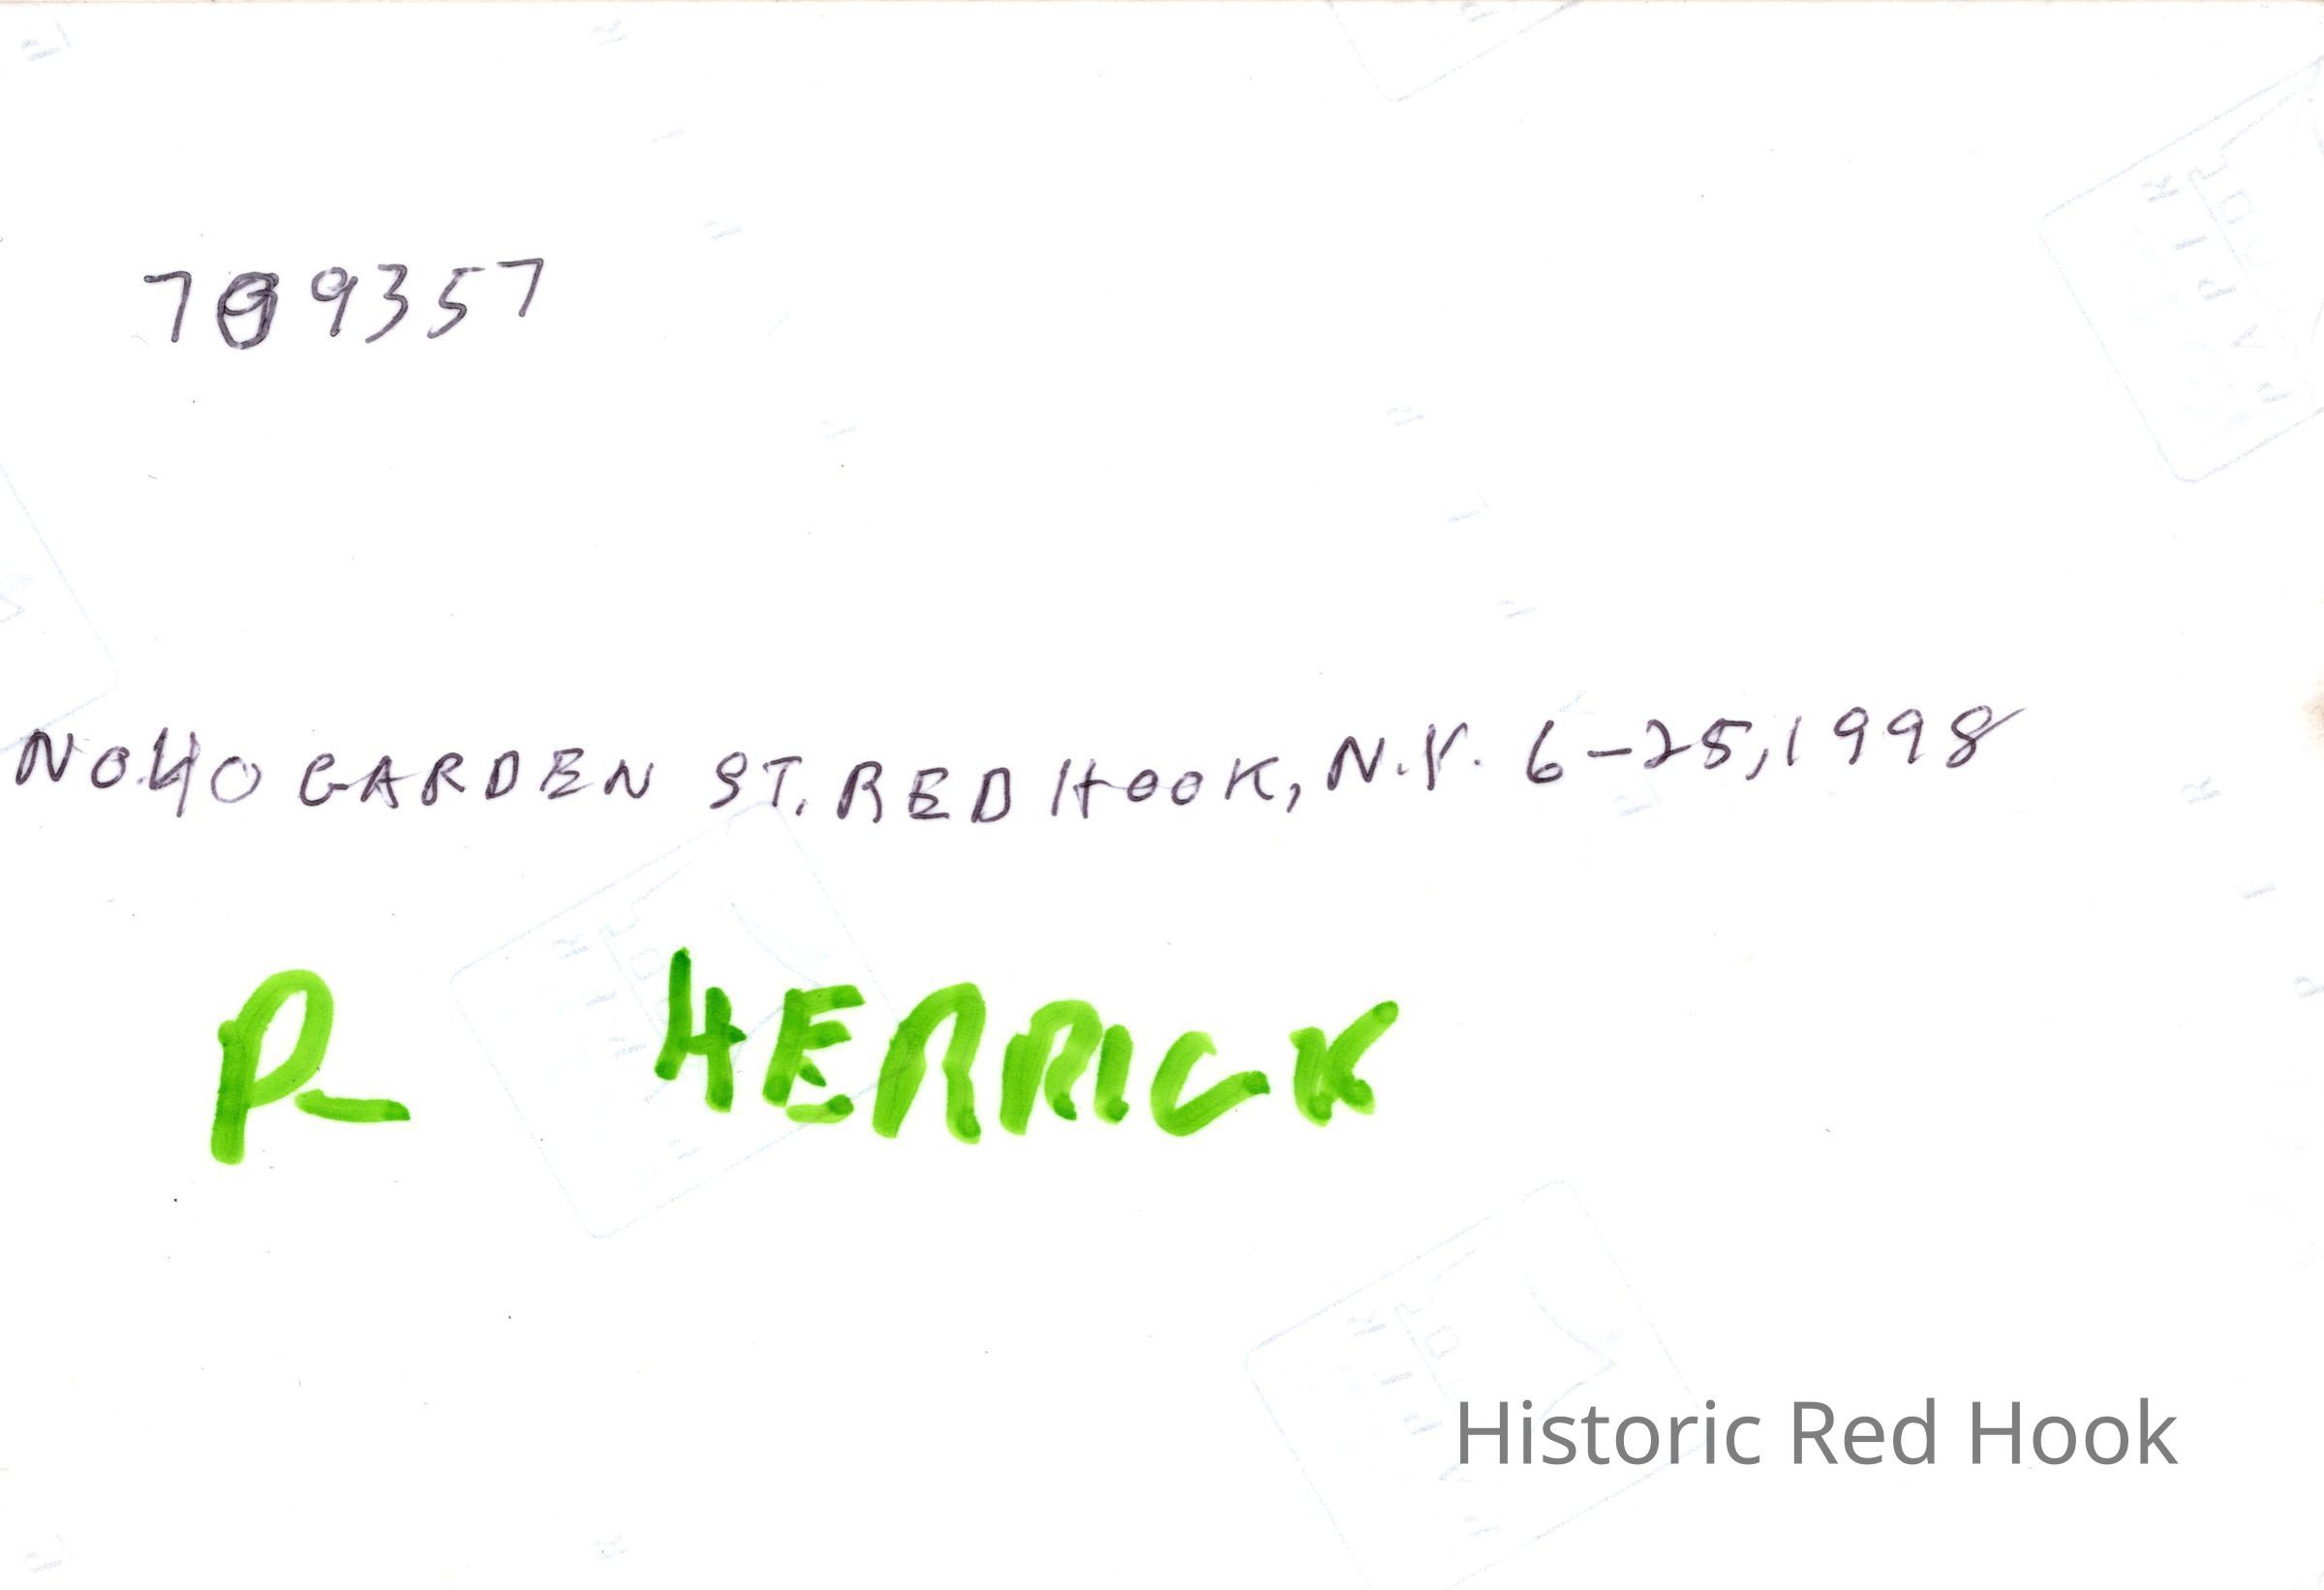 709357
NO.40 GARDEN ST. RED HOOK, N.Y. 6-25,1998
R HERRICK
Historic Red Hook